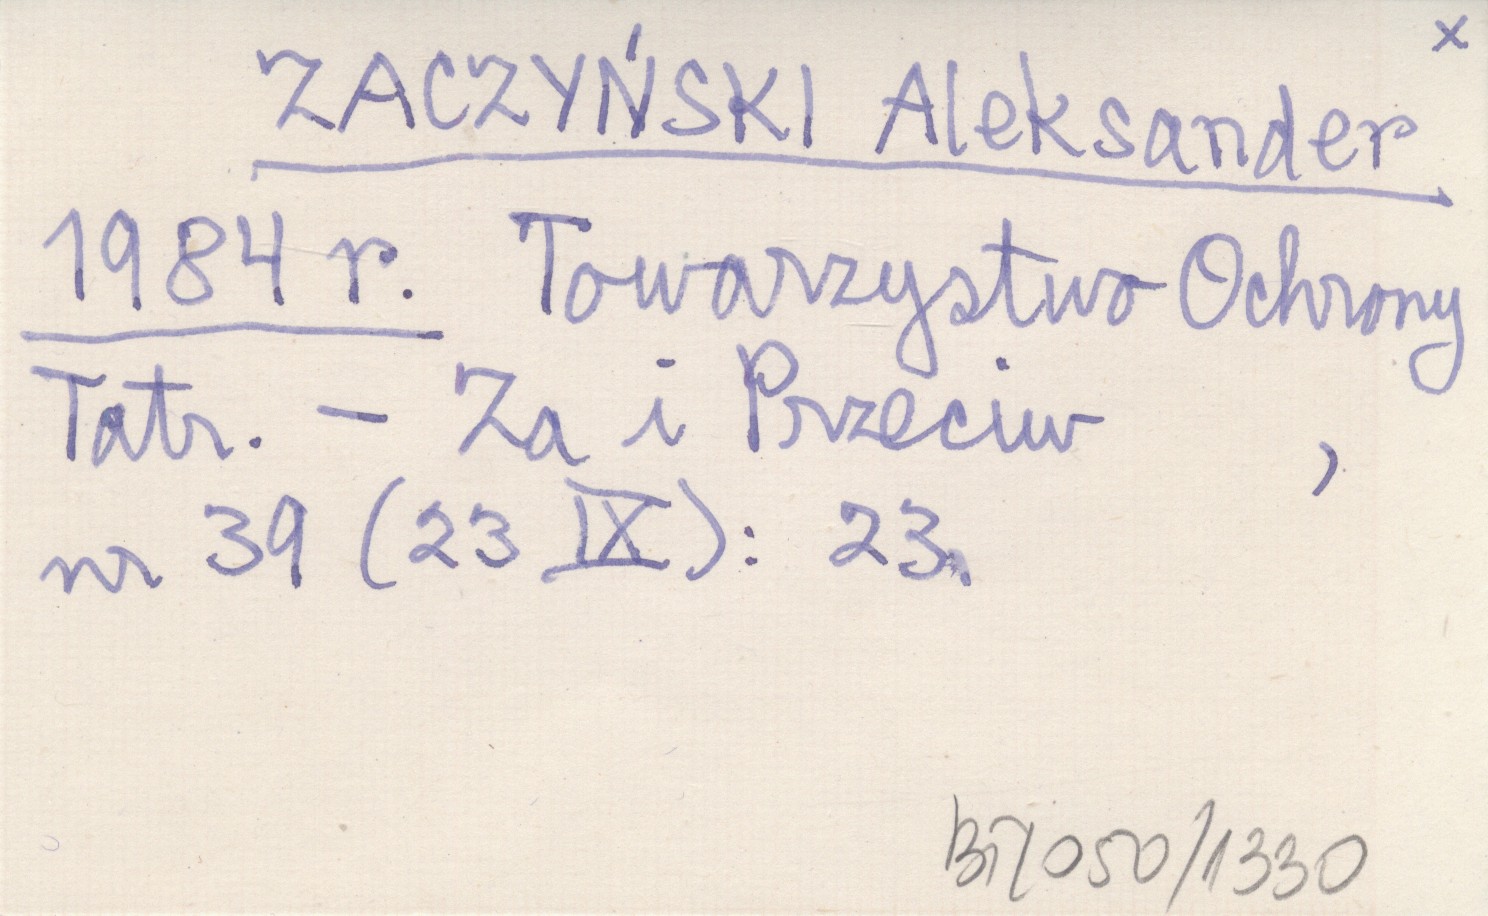 x
ZACZYŃSKI Aleksander
1984 r. Towarzystwo Ochrony
Tatr. – Za i Przeciw ,
nr 39 (23 IX): 23.
050/1330